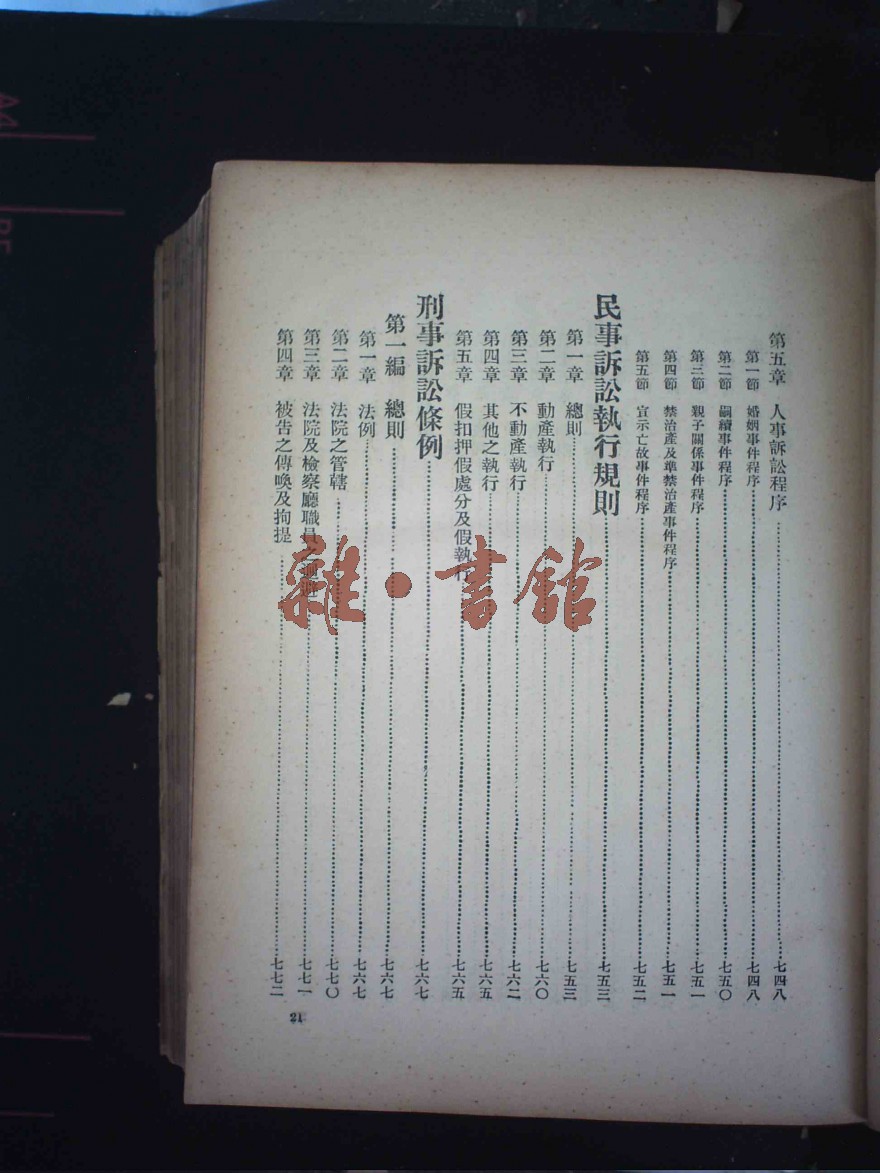 第五章　人事訴訟程序……七四八
第一節　婚姻事件程序……七四八
第二節　嗣續事件程序……七五〇
第三節　親子關係事件程序……七五一
第四節　禁治產及準禁治產事件程序……七五一
第五節　宣示亡故事件程序……七五二
民事訴訟執行規則……七五三
第一章　總則……七五三
第二章　動產執行……七六〇
第三章　不動產執行……七六二
第四章　其他之執行……七六五
第五章　假扣押假處分及假執行……七六五
刑事訴訟條例……七六七
第一編　總則……七六七
第一章　法例……七六七
第二章　法院之管轄……七七〇
第三章　法院及檢察廳職員……七七一
第四章　被告之傳喚及拘提……七七二
雜·書館